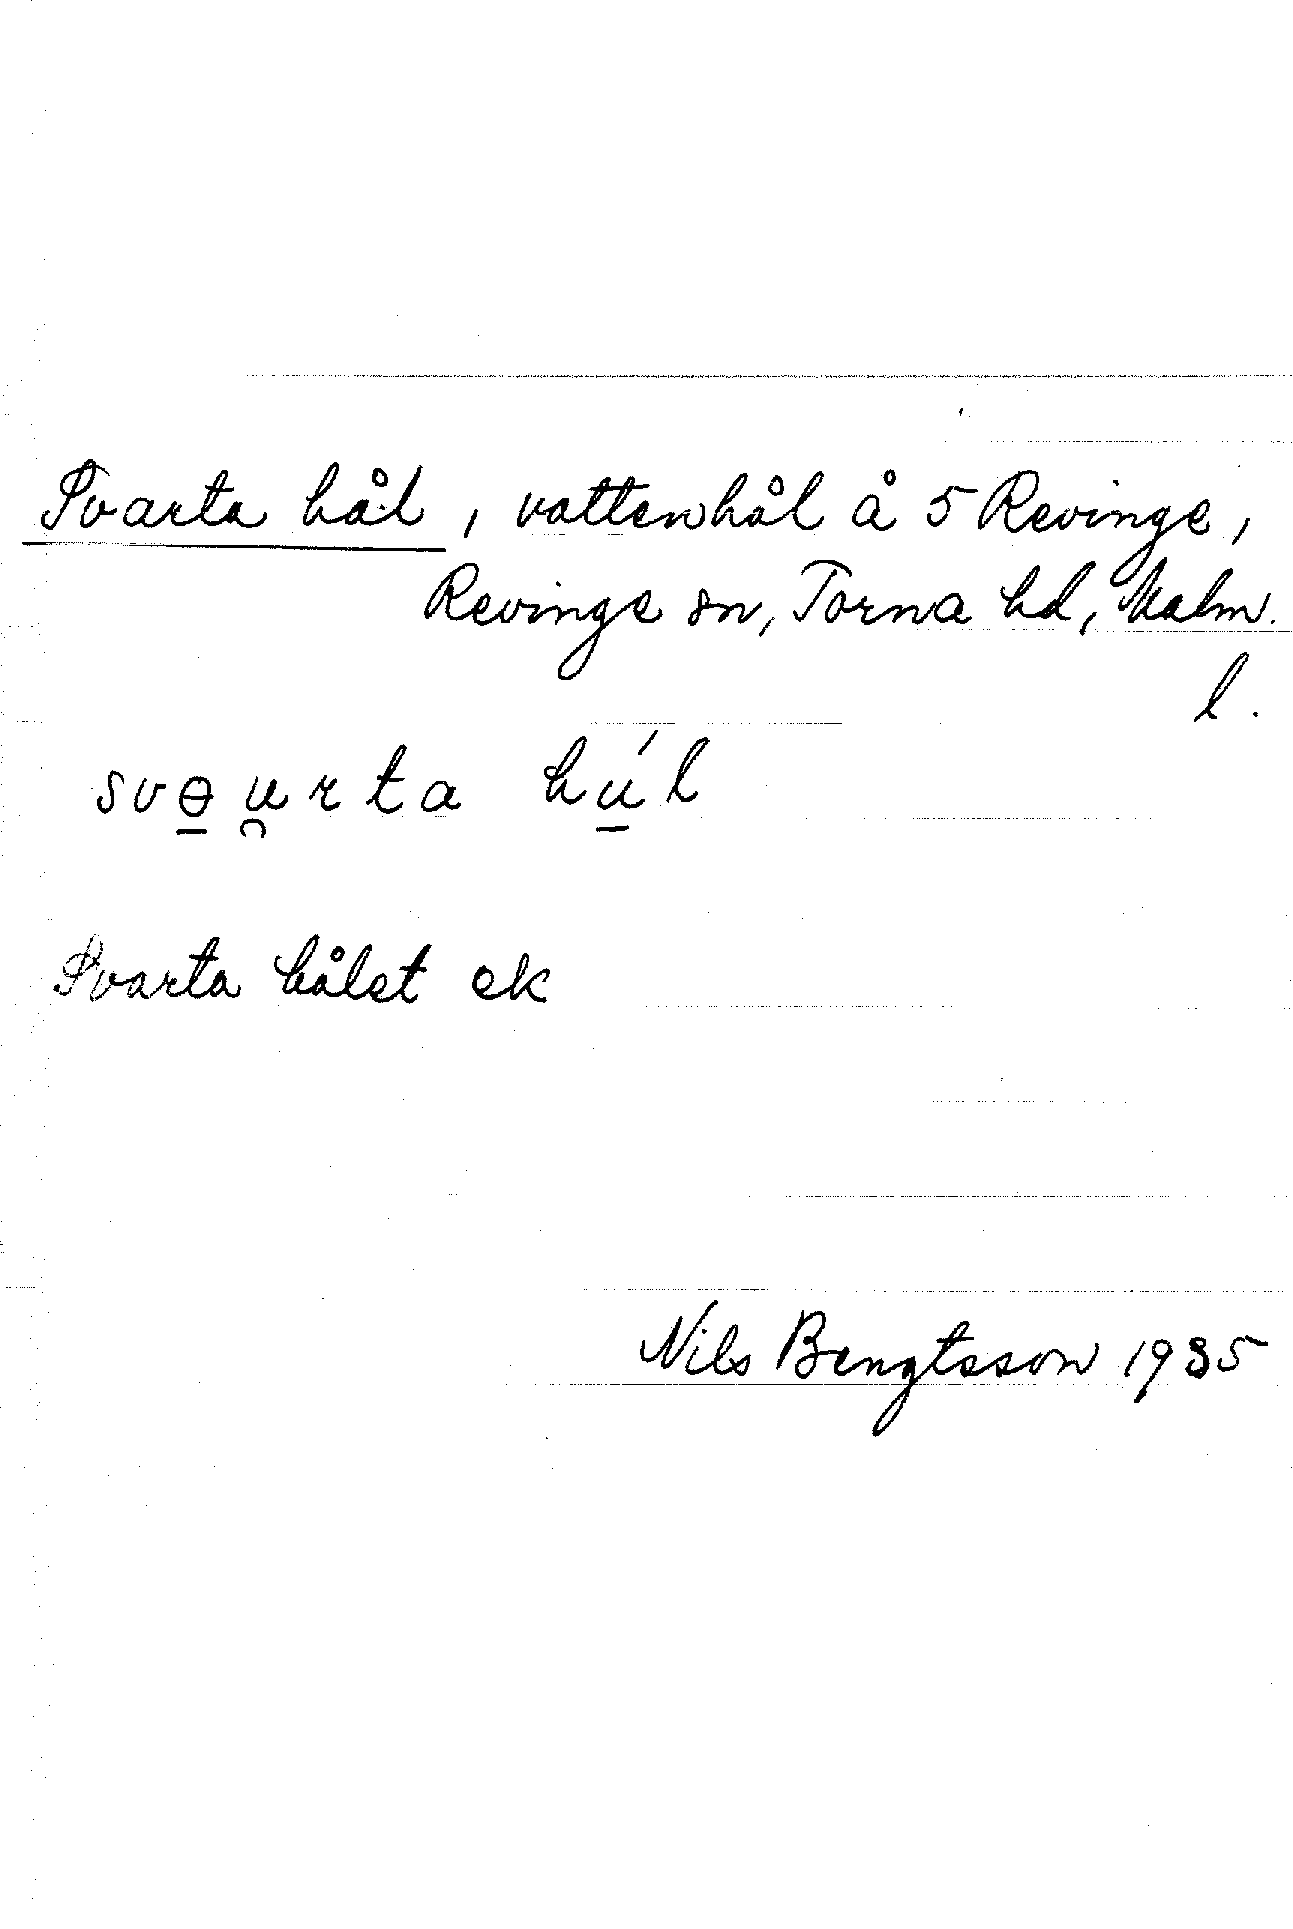 Svarta hål, vattenhål å 5 Revinge,
Revinge sn, Torna hd, Malm.
l.
svɵ̲u̯rta hú̲l
Svarta hålet ek
Nils Bengtsson 1935